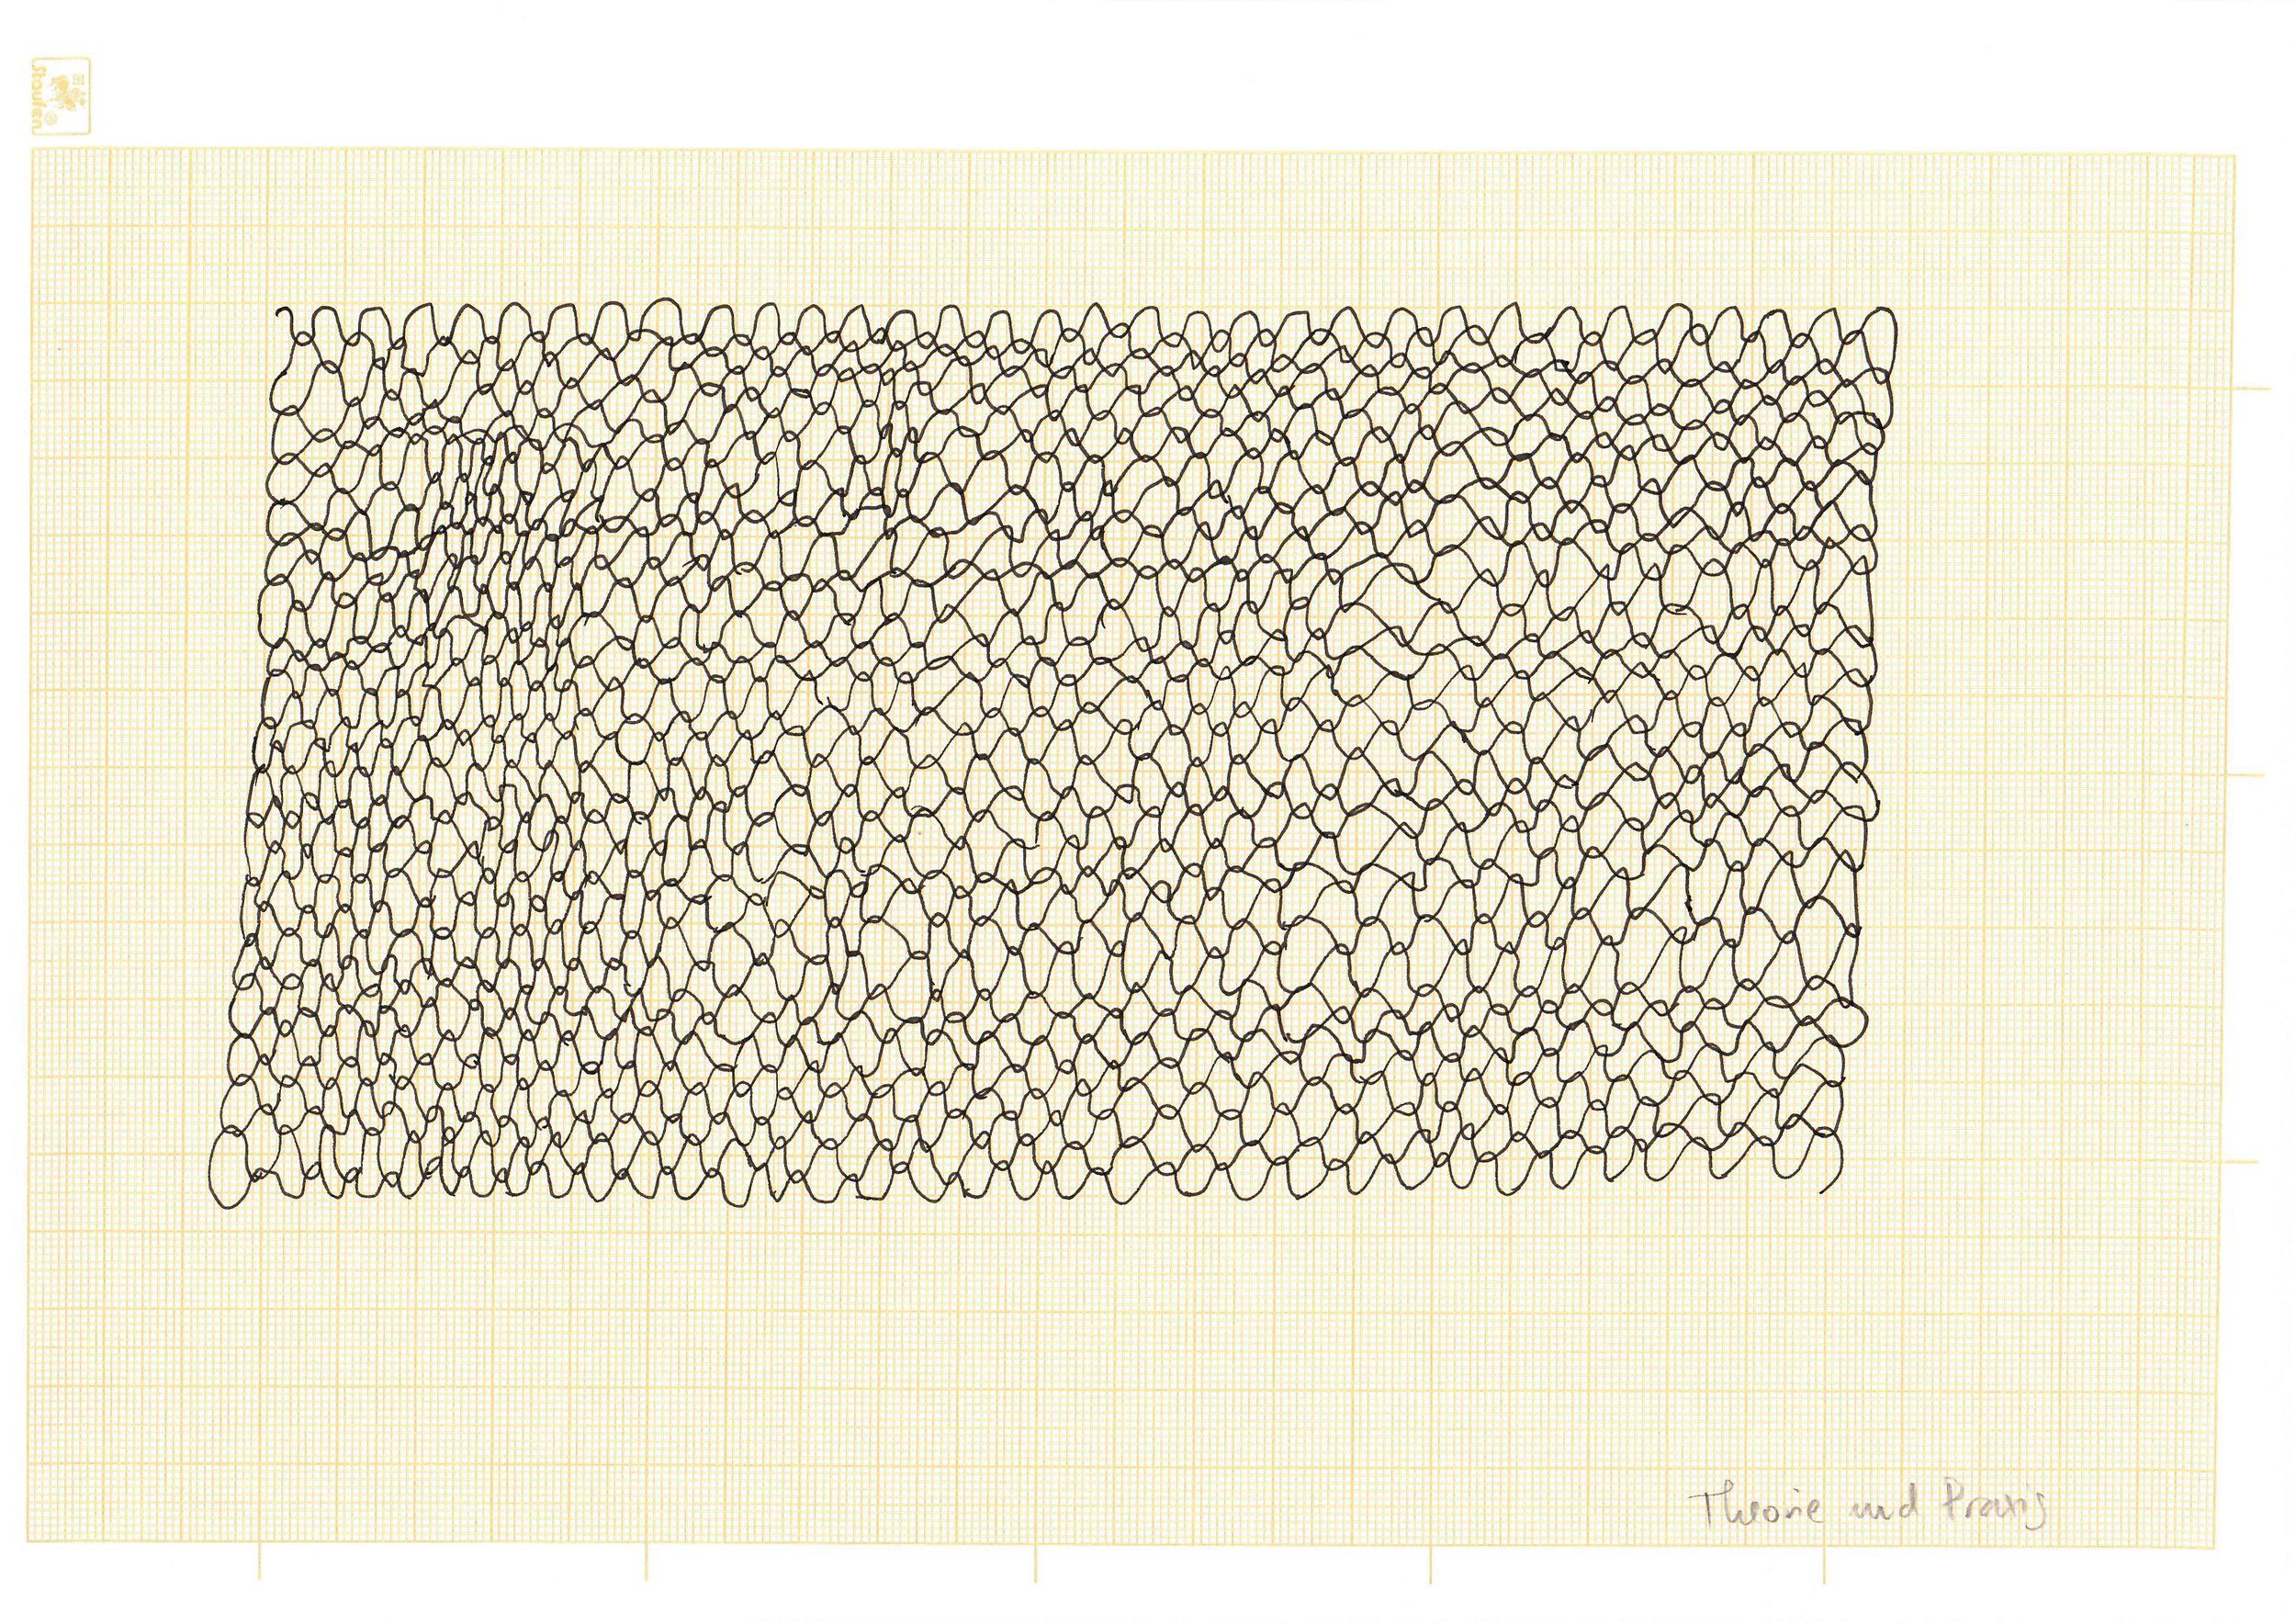 Staufen
Theorie und Praxis